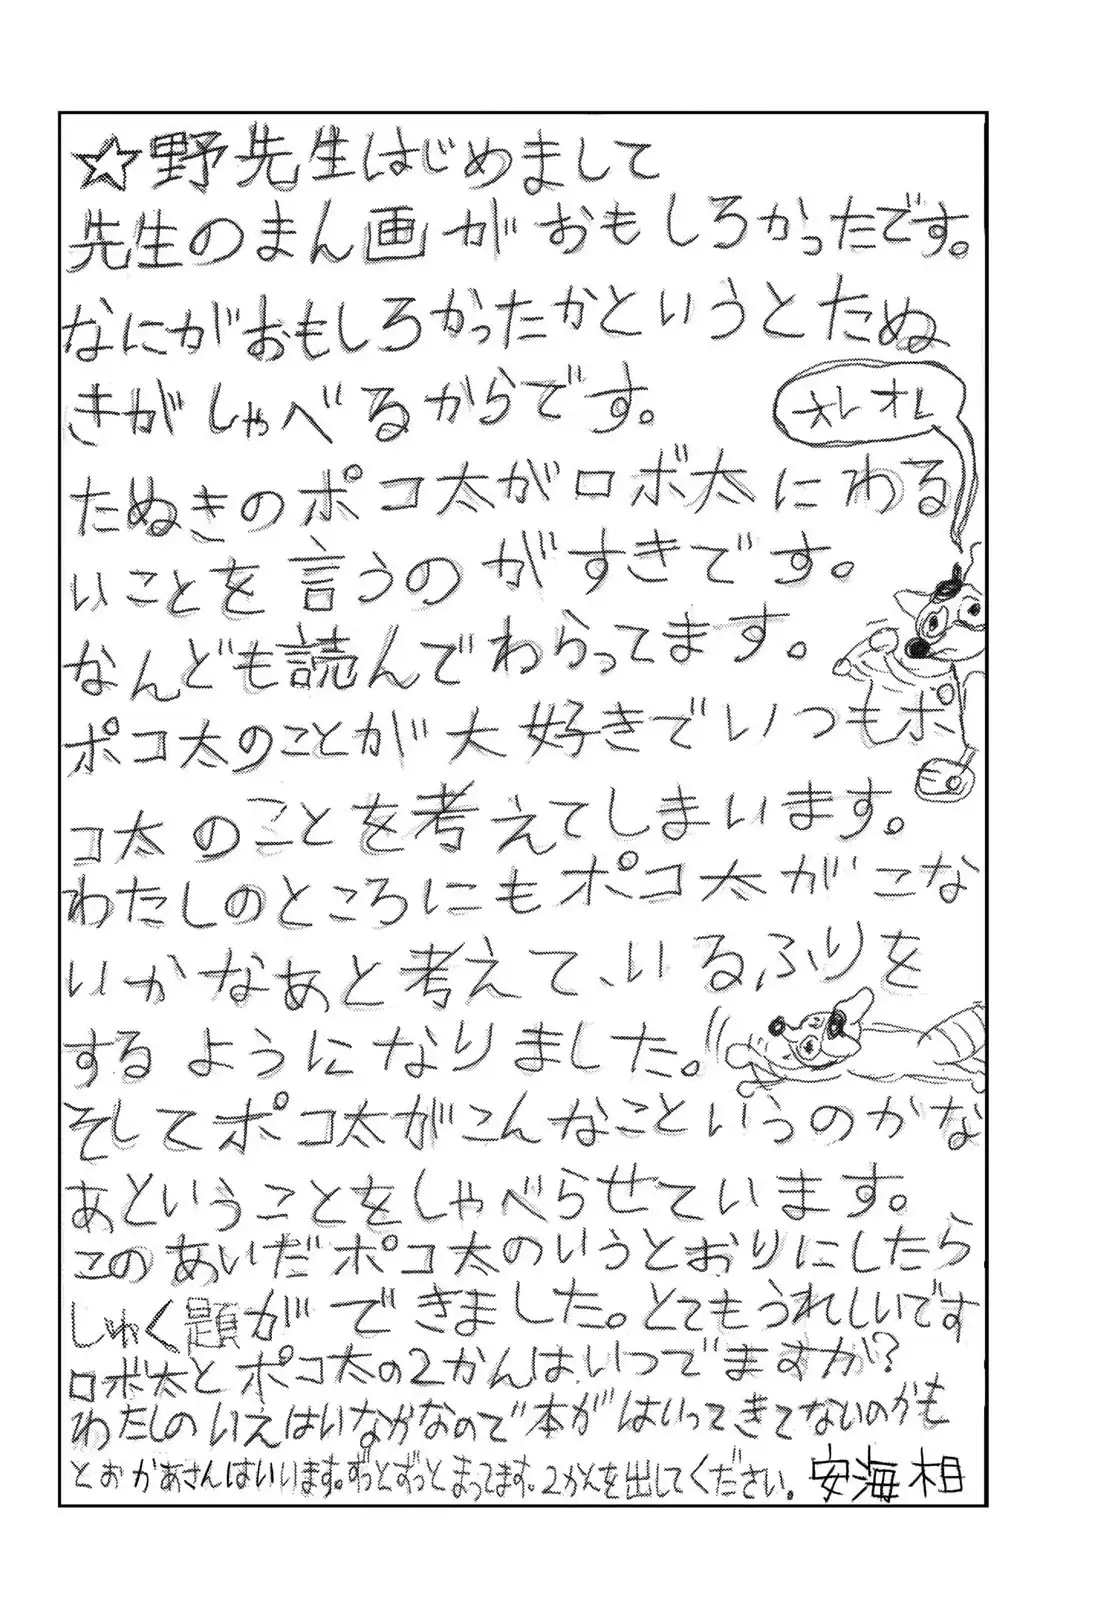 ☆野先生はじめまして
先生のまん画がおもしろかったです。
なにがおもしろかったかというとたぬ
きがしゃべるからです。
オレオレ
たぬきのポコ太がロボ太にわる
いことを言うのがすきです。
なんども読んでわらってます。
ポコ太のことが大好きでいつもポ
コ太のことを考えてしまいます。
わたしのところにもポコ太がこな
いかなあと考えて、いるふりを
するようになりました。
そしてポコ太がこんなこというのかな
あということをしゃべらせています。
このあいだポコ太のいうとおりにしたら
しゅく題ができました。とてもうれしいです
ロボ太とポコ太の2かんはいつでますか?
わたしのいえはいなかなので本がはいってきてないのかも
とおかあさんはいいます。ずっとずっとまってます。2かんを出してください。安海相